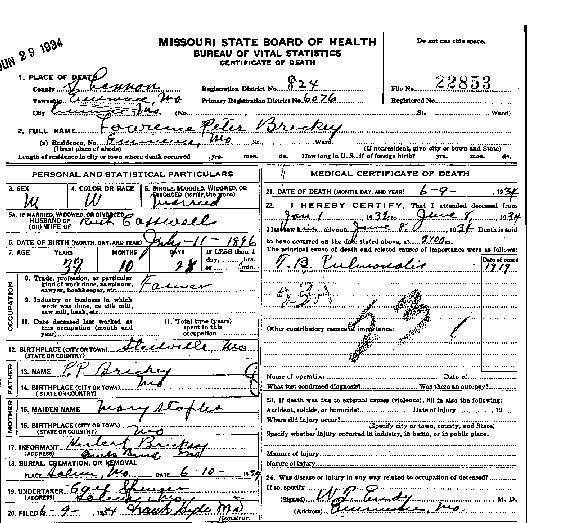 JUN 29 1934
MISSOURI STATE BOARD OF HEALTH
BUREAU OF VITAL STATISTICS
CERTIFICATE OF DEATH
Do not use this space.
1. PLACE OF DEATH
County Shannon Registration District No. 824 File No. 22853
Township Eminence, Mo Primary Registration District No. 6076 Registered No.
City (No. St. Ward)
2. FULL NAME Lawrence Peter Brickey
(a) Residence, No. Eminence, Mo St. Ward.
(Usual place of abode) (If nonresident, give city or town and State)
Length of residence in city or town where death occurred yrs. mos. ds. How long in U. S., if of foreign birth? yrs. mos. ds.
PERSONAL AND STATISTICAL PARTICULARS
3. SEX M
4. COLOR OR RACE W
5. SINGLE, MARRIED, WIDOWED, OR DIVORCED (write the word) Married
5A. IF MARRIED, WIDOWED, OR DIVORCED
HUSBAND OF
(OR) WIFE OF Ruth
6. DATE OF BIRTH (MONTH, DAY, AND YEAR) July-11-1896
7. AGE YEARS 37 MONTHS 10 DAYS 28 If LESS than 1 day, hrs. or min.
OCCUPATION
8. Trade, profession, or particular kind of work done, as spinner, sawyer, bookkeeper, etc. Farmer
9. Industry or business in which work was done, as silk mill, saw mill, bank, etc.
10. Date deceased last worked at this occupation (month and year)
11. Total time (years) spent in this occupation
12. BIRTHPLACE (CITY OR TOWN) Steelville, Mo.
(STATE OR COUNTRY)
FATHER
13. NAME P.P. Brickey
14. BIRTHPLACE (CITY OR TOWN) Mo
(STATE OR COUNTRY)
MOTHER
15. MAIDEN NAME Mary Staples
16. BIRTHPLACE (CITY OR TOWN) Mo
(STATE OR COUNTRY)
17. INFORMANT Herbert Brickey
(ADDRESS) Mo
18. BURIAL, CREMATION, OR REMOVAL
PLACE Salem, Mo. DATE 6-10-1934
19. UNDERTAKER
(ADDRESS) Salem, Mo.
20. FILED 6-9-34 Frank Hyde Md
Registrar.
MEDICAL CERTIFICATE OF DEATH
21. DATE OF DEATH (MONTH, DAY, AND YEAR) 6-9-1934
22. I HEREBY CERTIFY, That I attended deceased from
Jan 1 1932, to June 8, 1934
I last saw h alive on June 8, 1934 Death is said
to have occurred on the date stated above, at m.
The principal cause of death and related causes of importance were as follows:
Date of onset
T.B. Pulmonalis 1919
23A
23
Other contributory causes of importance:
Name of operation Date of
What test confirmed diagnosis? Was there an autopsy?
23. If death was due to external causes (violence), fill in also the following:
Accident, suicide, or homicide? Date of injury 19
Where did injury occur?
(Specify city or town, county, and State)
Specify whether injury occurred in industry, in home, or in public place.
Manner of injury
Nature of injury
24. Was disease or injury in any way related to occupation of deceased?
If so, specify
(Signed) M. D.
(Address) Eminence, Mo